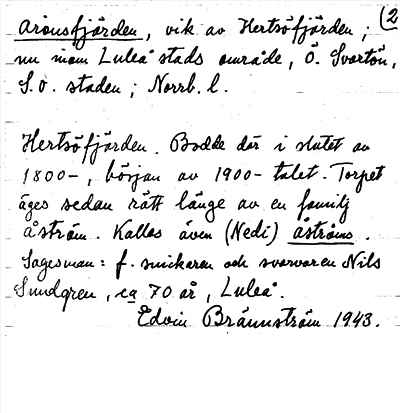 (2
Aronsfjärden, vik av Hertsöfjärden;
nu inom Luleå stads område, Ö. Svartön,
S.O. staden; Norrb. l.
Hertsöfjärden. Bodde där i slutet av
1800-, början av 1900-talet. Torpet
äges sedan rätt länge av en familj
Åström. Kallas även (Nedi) Åströms.
Sagesman: f. snickaren och svarvaren Nils
Sundgren, ca 70 år, Luleå.
Edvin Brännström 1943.